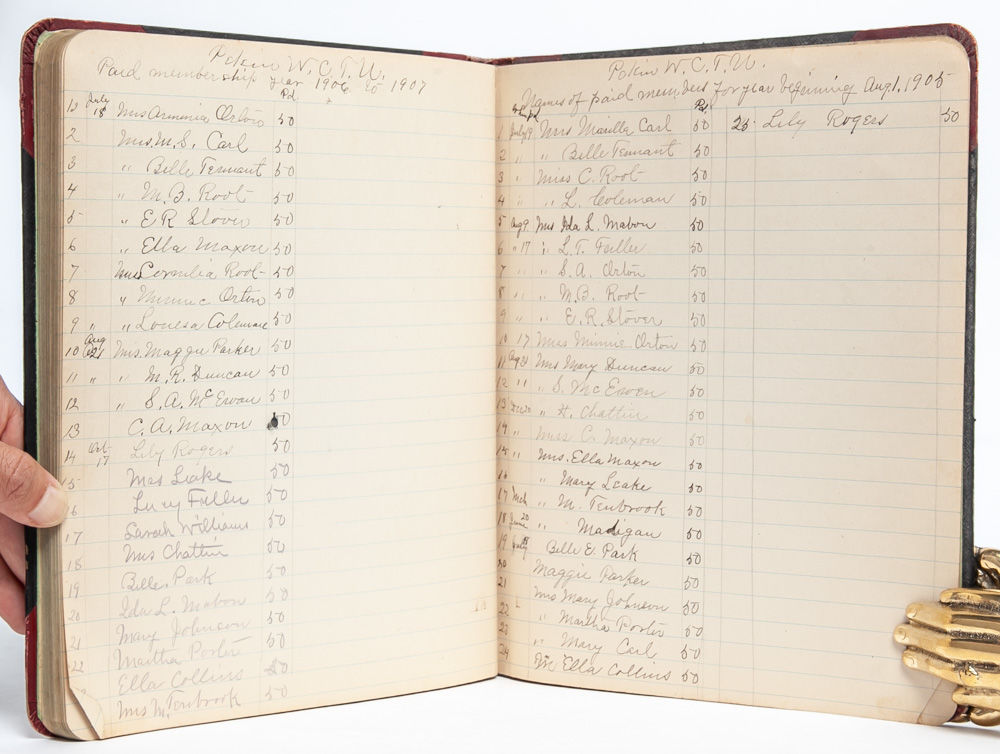 Pekin W. C. T. U.
Paid membership year 1906 to 1907
Pd.
July 18 Mrs Arminia Orton 50
2 Mrs. M. S. Carl 50
3 " Belle Tennant 50
4 " M. B. Root 50
5 " E R Stover 50
6 " Ella Maxon 50
7 Cornelia Root 50
8 " Minnie Orton 50
9 " " Louesa Coleman 50
10 Aug 21 Mrs. Maggie Parker 50
11 " " M. R. Duncan 50
12 " S. A. McEwan 50
13 C. A. Maxon 50
14 Oct 17 Lily Rogers 50
15 Mrs Leake 50
16 Lucy Fuller 50
17 Sarah Williams 50
18 Mrs Chattin 50
19 Belle Park 50
20 Ida L. Mabon 50
21 Mary Johnson 50
22 Martha Porter 50
Ella Collins 50
Mrs M. Tenbrook 50
Pekin W. C. T. U.
Names of paid members for year beginning Aug 1, 1905
Pd.
1 July 19 Mrs Marilla Carl 50
2 " " Belle Tennant 50
3 " Miss C. Root 50
4 " " L. Coleman 50
5 Aug 9 Mrs Ida L. Mabon 50
6 " 17 " L. T. Fuller 50
7 " " S. A. Orton 50
8 " " M. B. Root 50
9 " " E. R. Stover 50
10 17 Miss Minnie Orton 50
11 Aug Mrs Mary Duncan 50
12 " " S. McEwen 50
13 " H. Chattin 50
14 " Miss C. Maxon 50
15 " Mrs. Ella Maxon 50
16 " Mary Leake 50
17 Mch " M. Tenbrook 50
18 June 20 " Madigan 50
19 July Belle E. Park 50
20 Maggie Parker 50
21 Mrs Mary Johnson 50
22 " Martha Porter 50
23 " Mary Carl 50
24 Ella Collins 50
25 Lily Rogers 50